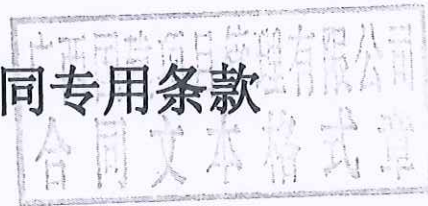 同专用条款
管理有限公司
合同文本格式章